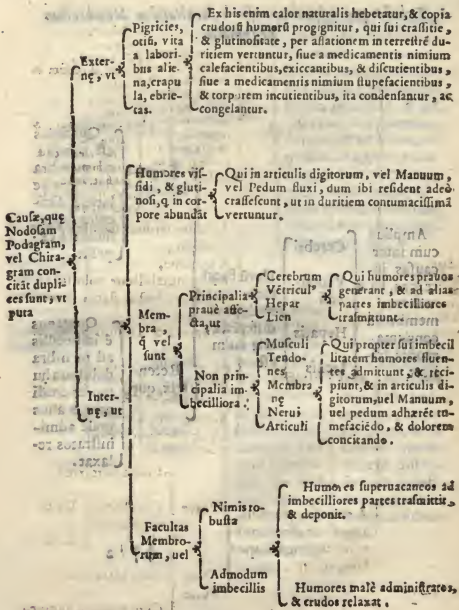 Causæ, quę
Nodosam
Podagram,
vel Chira-
gram con-
citāt dupli-
ces sunt; vt
puta
Exter-
nę, vt
Pigricies,
otiū, vita
a labori-
bus alie-
na, crapu
la, ebrie-
tas.
Ex his enim calor naturalis hebetatur, & copia
crudorū humorū progignitur, qui sui crassitie,
& glutinositate, per assationem in terrestrē du-
ritiem vertuntur, siue a medicamentis nimium
calefacientibus, exiccantibus, & discutientibus,
siue a medicamentis nimium stupefacientibus,
& torporem incutientibus, ita condensantur, ac
congelantur.
Inter-
nę, ut
Humores vis-
sidi, & gluti-
nosi, q̄ in cor-
pore abundāt
Qui in articulis digitorum, vel Manuum,
vel Pedum fluxi, dum ibi resident adeò
crassescunt, ut in duritiem contumacissimā
vertuntur.
Mem-
bra,
q̄ vel
sunt
Principalia
prauè affe-
cta, ut
Cerebrum
Vētricul⁹
Hepar
Lien
Qui humores prauos
generant, & ad alias
partes imbecilliores
trāsmittunt.
Non prin-
cipalia im-
becilliora:
Musculi
Tendo-
nes
Membra-
nę
Nerui
Articuli
Qui propter sui imbecil
litatem humores fluen-
tes admittunt, & reci-
piunt, & in articulis di-
gitorum, uel Manuum,
uel pedum adhærēt tu-
mefaciēdo, & dolorem
concitando.
Facultas
Membro-
rum, uel
Nimis ro-
busta
Humores superuacaneos ad
imbecilliores partes trāsmittit,
& deponit.
Admodum
imbecillis
Humores malè administratos,
& crudos relaxat.